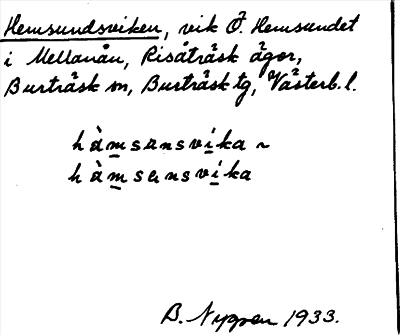 Hemsundsviken, vik Ö. Hemsundet
i Mellanån, Risåträsk ägor,
Burträsk sn, Burträsk tg, Västerb. l.
hàmsunsvika ~
hàmsunsvika
B. Nyppen 1933.